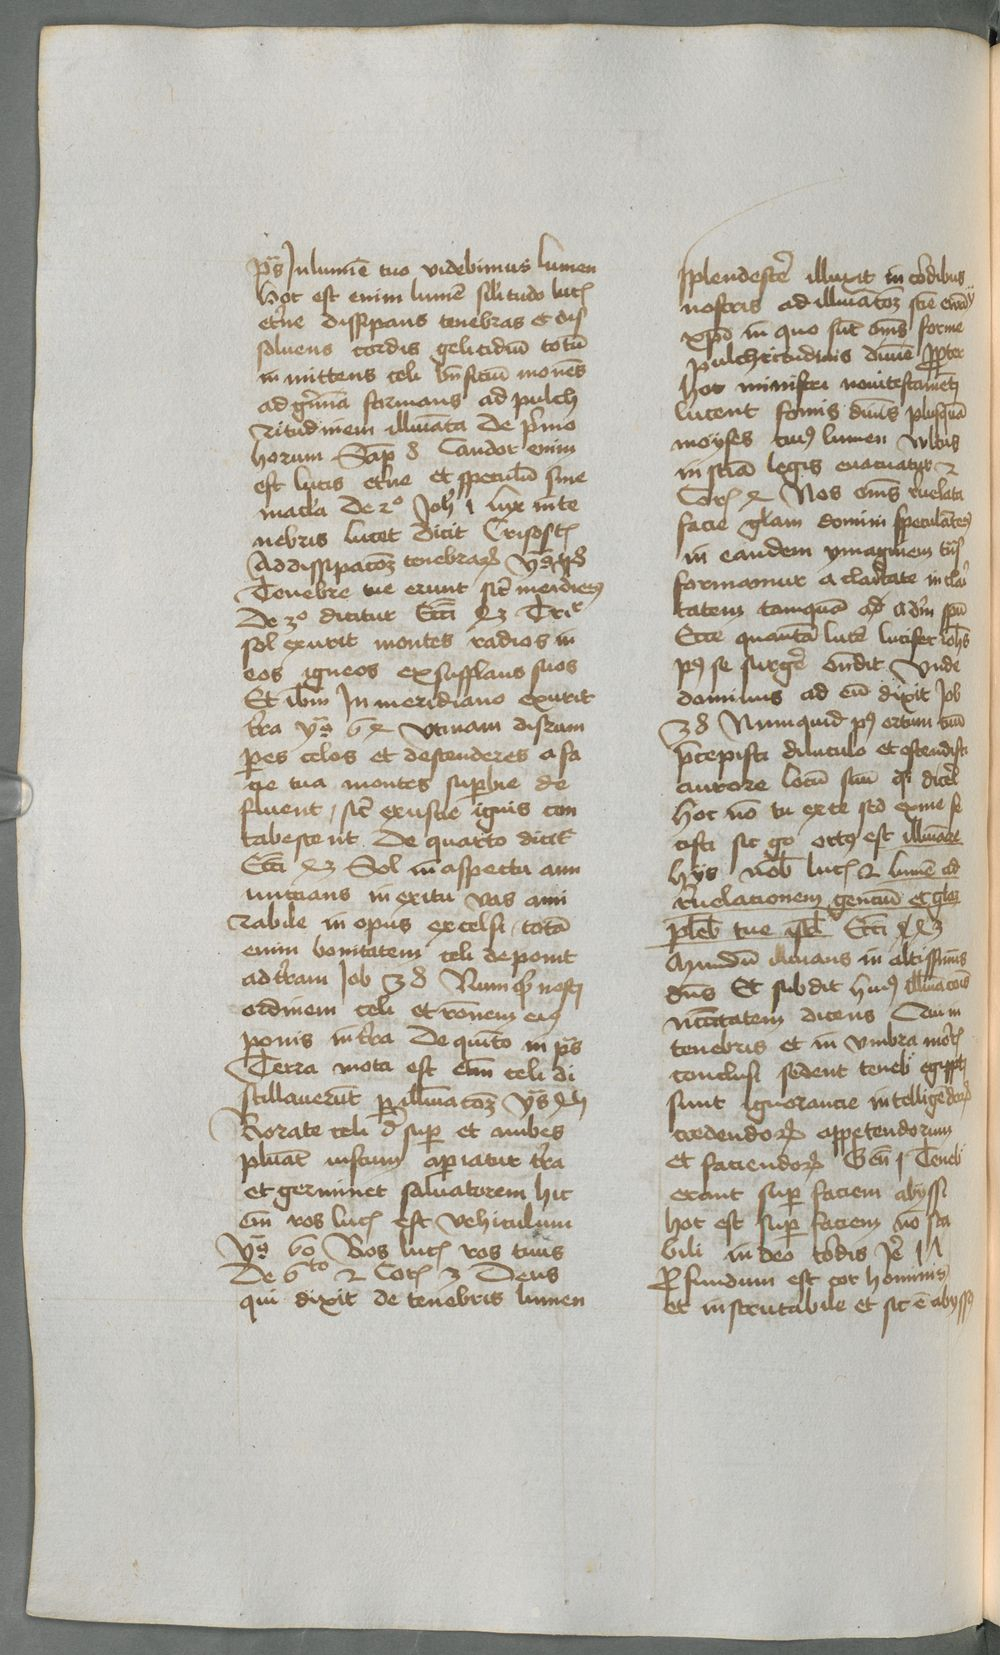 ps̄ Jnlumīe tuo videbimus lumen
hoc est enim lumē silitudo lucꝭ
etͤne dissipans tenebras et dis
soluens cordis gelicidiū totū
in mittens celi bn̄ficiū mouēs
ad gͤmīa formans ad pulch
ritudinem illuīata De pͥmo
horum Sap̄ 8 Candor enim
est lucis etͤne et speculū sine
macla De 2º Joh̄ 1 lux inte
nebris lucet dicit Crisostꝭ
Addissipacōꝫ tenebraꝝ ysᵃ
Tenebre tue erunt sic̄ meridies
De 3º dicitur Ecci 43
sol exurit montes radios in
eos igneos exsufflans suos
Et ibm̄ Jn meridiano exurit
tͤra ysᵃ 64 vtinam disrum
peres celos et descenderes a fa
cie tua montes suꝑbie de
fluent / sic̄ exustie ignis con
tabescēnt De quarto dicitͬ
Ecci 43 Sol in aspectu ann
uncians in exitu vas ami
rabile in opus excelsi / totā
enim bonitatem celi deponit
ad tͤram Job 38 Numqͥd nosti
ordinem celi et rōnem eiꝰ
ponis in tͤra De quīto in ps̄
Terra mota est etem̄ celi di
stillauerūt ꝑ illuīacōꝫ ys̄ 45
Rorate celi dͤsuꝑ et nubes
pluāt iustum aꝑiatur tͤra
et germinet saluatorem hic
em̄ ros lucꝭ est vehiculum
ysᵃ 60 Ros lucꝭ ros tuus
De 6ᵗᵒ 2 Corꝭ 3 Deus
qui dixit de tenebris lumen
splendescerͤ illuxit in cordibus
nostris ad illuīacōꝫ scīe
xp̄i in quo sūt oms̄ forme
pulchritudinis diuīe ꝓpter
hoc ministri noui testamēti
lucent formis diuīs plusquā
moyses cuiꝰ lumen vltus
in scīa legis euacuatur 2
Corꝭ 4 Nos oms̄ rͤuelata
facie glam̄ domini speculātes
in eandem ymaginem tͣns
formamur a claritate in clari
tatem tamquā a dn̄i spū
Ecce quantā lucē lucifer ioh̄s
pꝰ se surgerͤ on̄dit Vnde
dominus ad eū dixit Job
38 Numquid pꝰ ortum tuū
p̄cepisti diluculo et ostendisti
aurore locū suū qͥ dicerͤ
Hoc nō tu ex te sed ex me fe
cisti sic gͦ ortꝰ est illuīare
hijs nob̄ lucꝭ 2 lumē ad
rͤuelacionem gencium et glaꝫ
pleb̄ tue isrl̄ Ecci 43
Mundū illuīans in altissimis
dn̄s Et subdit huiꝰ illuīacōis
vtilitatem dicens Qui in
tenebris et in vmbra mortꝭ
conclusi sedent tenebͤ egipti
sunt ignorancie intelligēdoꝝ
credendoꝝ appetendorum
et faciendoꝝ Gen̄ 1 Tenebͤ
erant suꝑ faciem abyssi
hoc est suꝑ faciem nō sta
bili in deo cordis Jeͤ 17
ꝓfundum est cor hominis
et inscrutabile et sic ē abyssꝰ